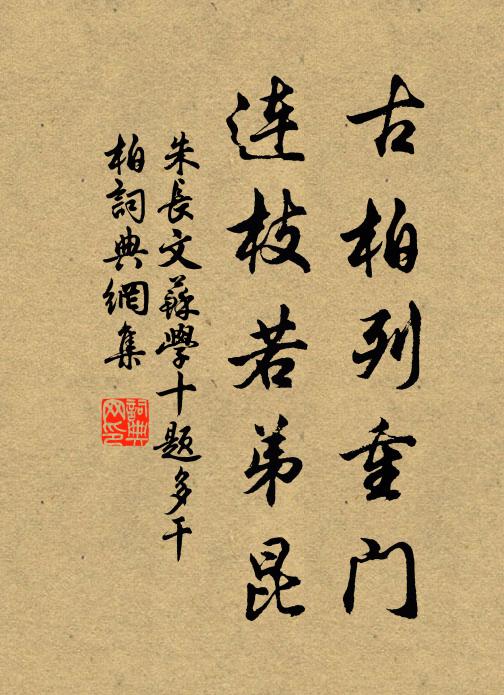 古柏列重门
連枝若弟昆
朱長文蘇學十題多干
柏詞典網集
詞典
网印